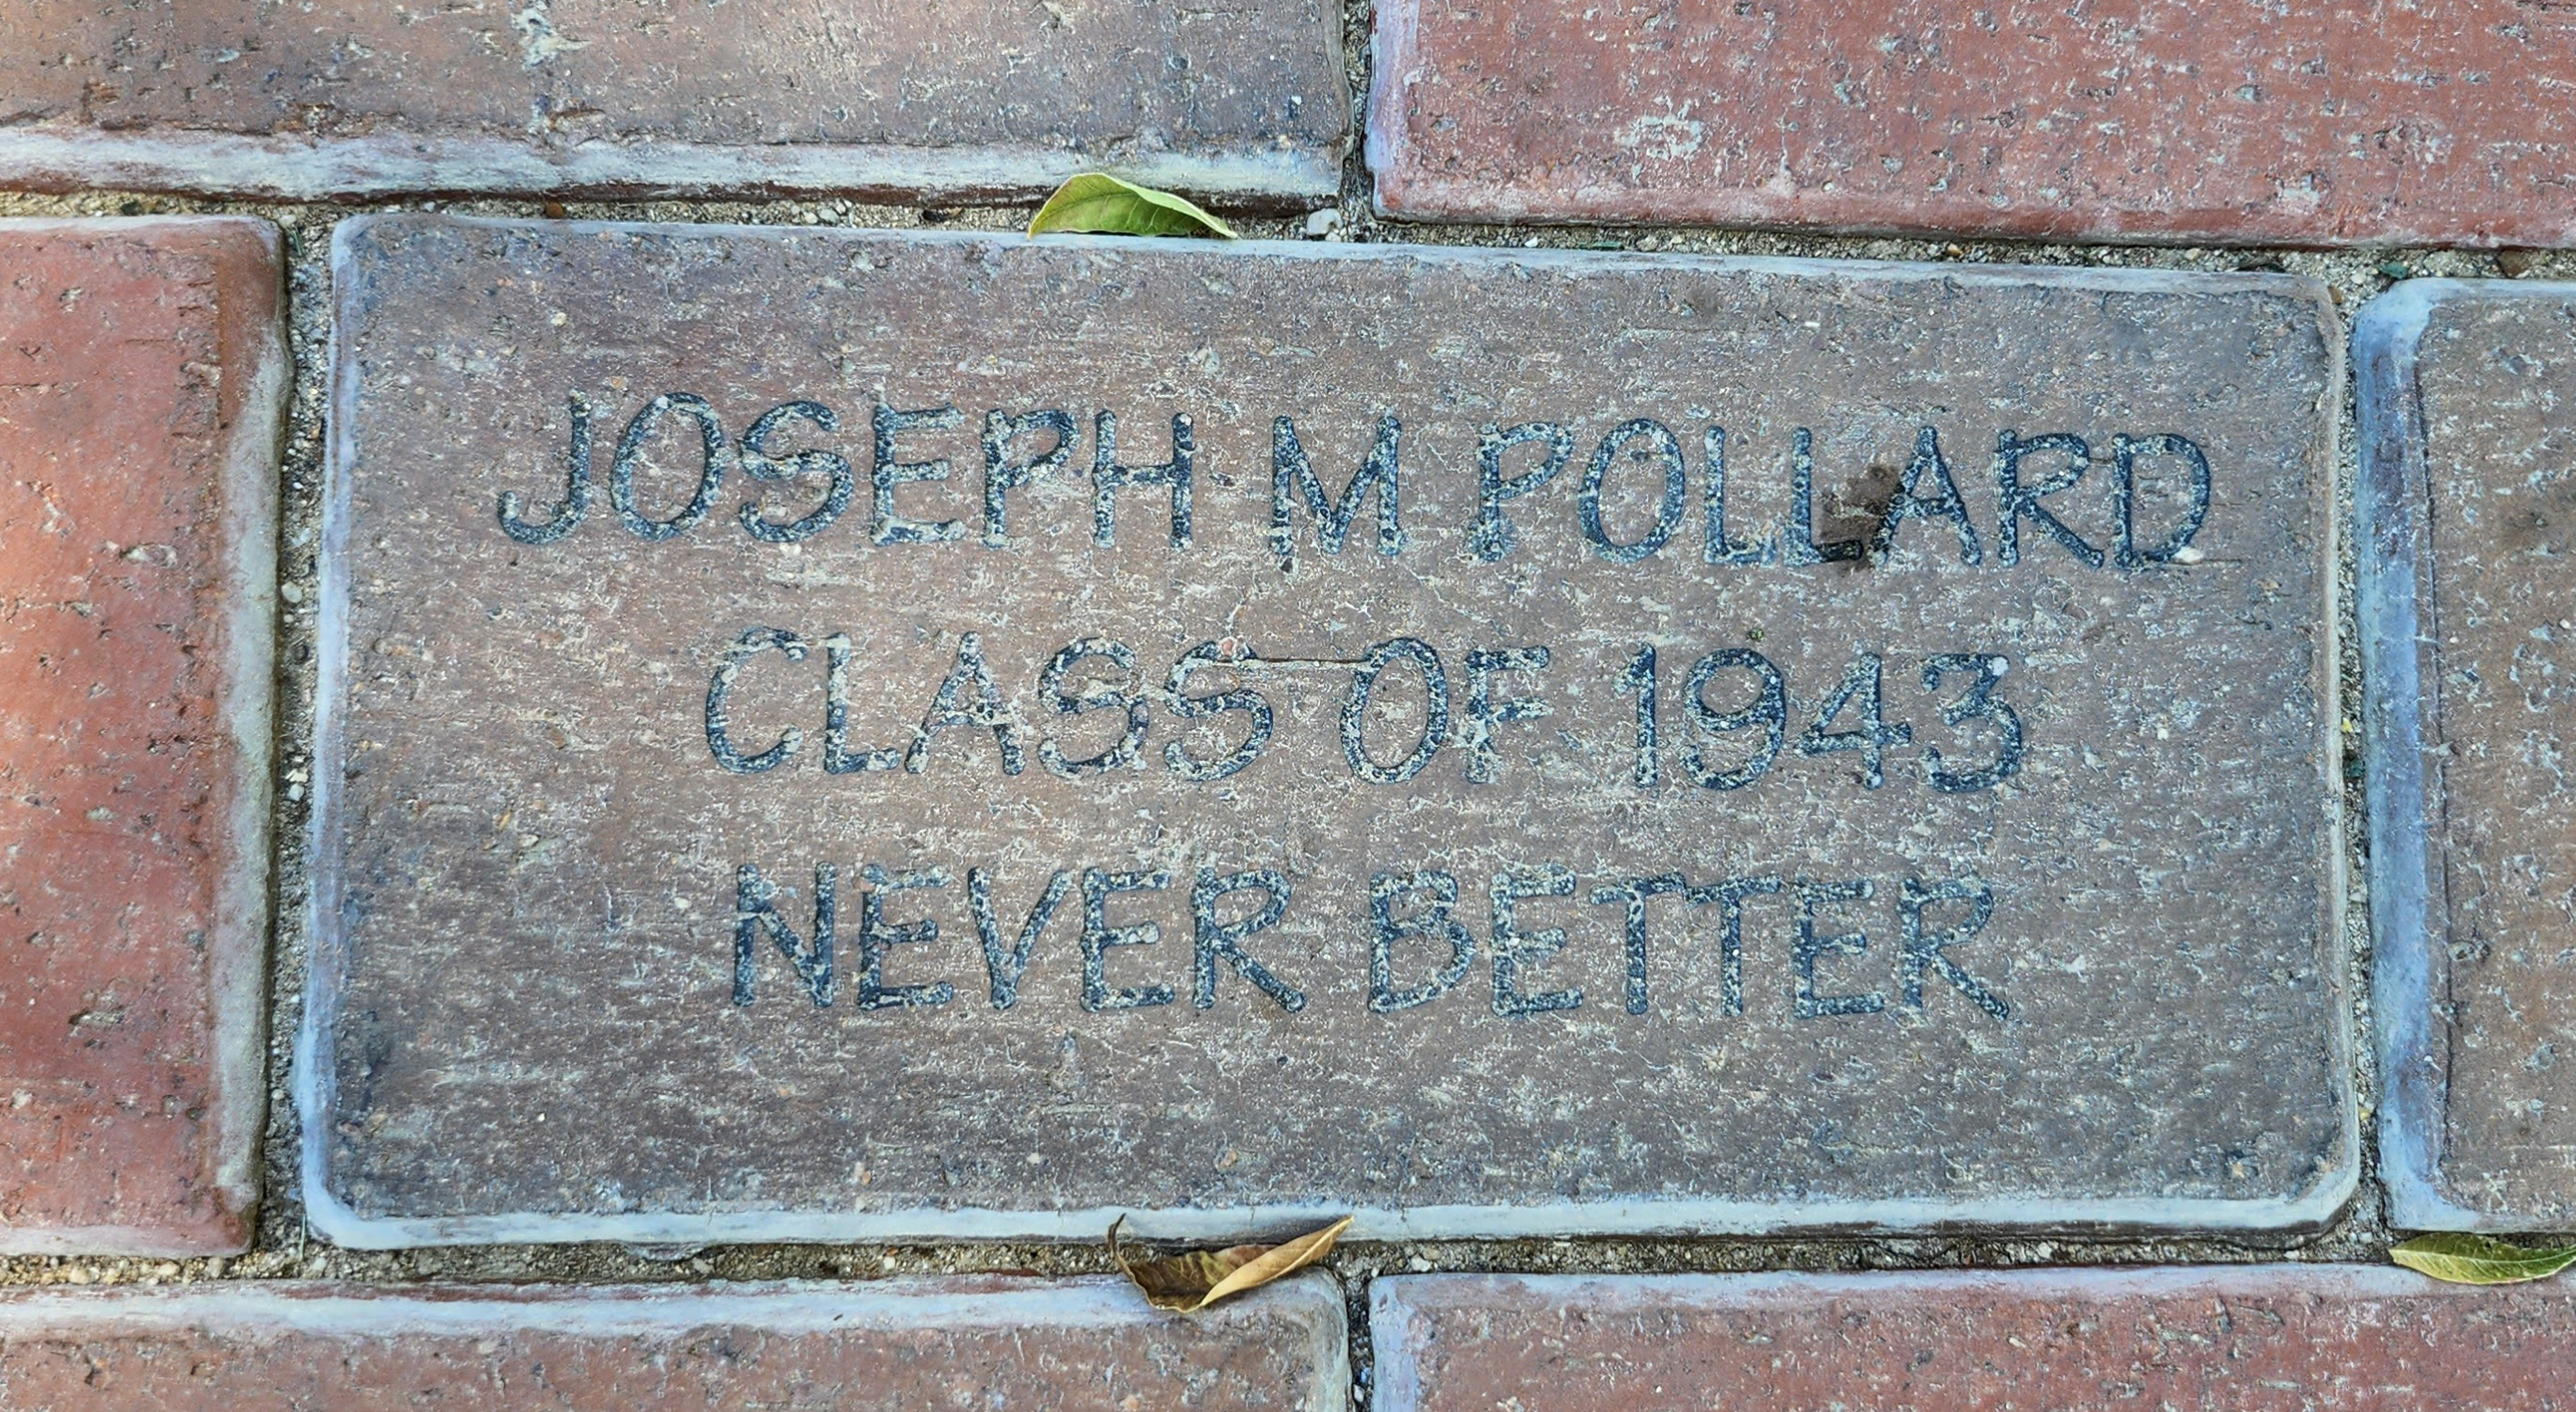 JOSEPH M POLLARD
CLASS OF 1943
NEVER BETTER